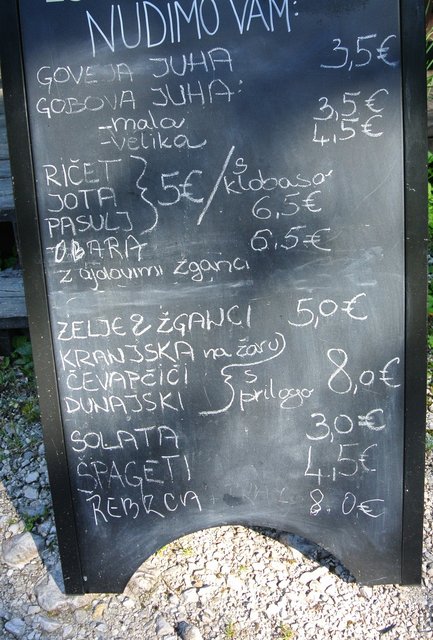 NUDIMO VAM:
GOVEJA JUHA 3,5€
GOBOVA JUHA:
-mala 3,5€
-velika 4,5€
RIČET
JOTA 5€ / s klobaso
PASULJ 6,5€
OBARA 6,5€
z ajdovimi žganci
ZELJE & ŽGANCI 5,0€
KRANJSKA na žaru
ČEVAPČIČI s 8,0€
DUNAJSKI prilogo
SOLATA 3,0€
ŠPAGETI 4,5€
REBRCA 8.0€